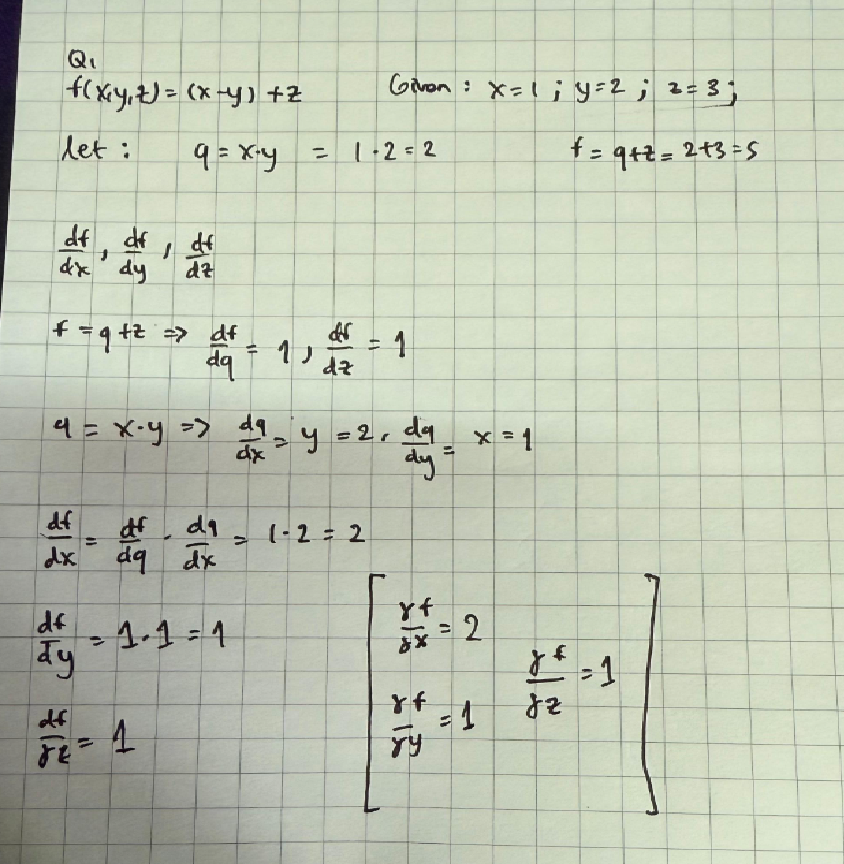 Q1
f(x,y,z) = (x-y) + z    Given : x=1 ; y=2 ; z=3 ;
let :    q = x·y = 1·2 = 2    f = q+z = 2+3 = 5
df/dx , df/dy , df/dz
f = q+z => df/dq = 1 , df/dz = 1
q = x·y => dq/dx = y = 2 , dq/dy = x = 1
df/dx = df/dq · dq/dx = 1·2 = 2
df/dy = 1·1 = 1
df/γz = 1
[ γf/γx = 2
γf/γz = 1
γf/γy = 1 ]